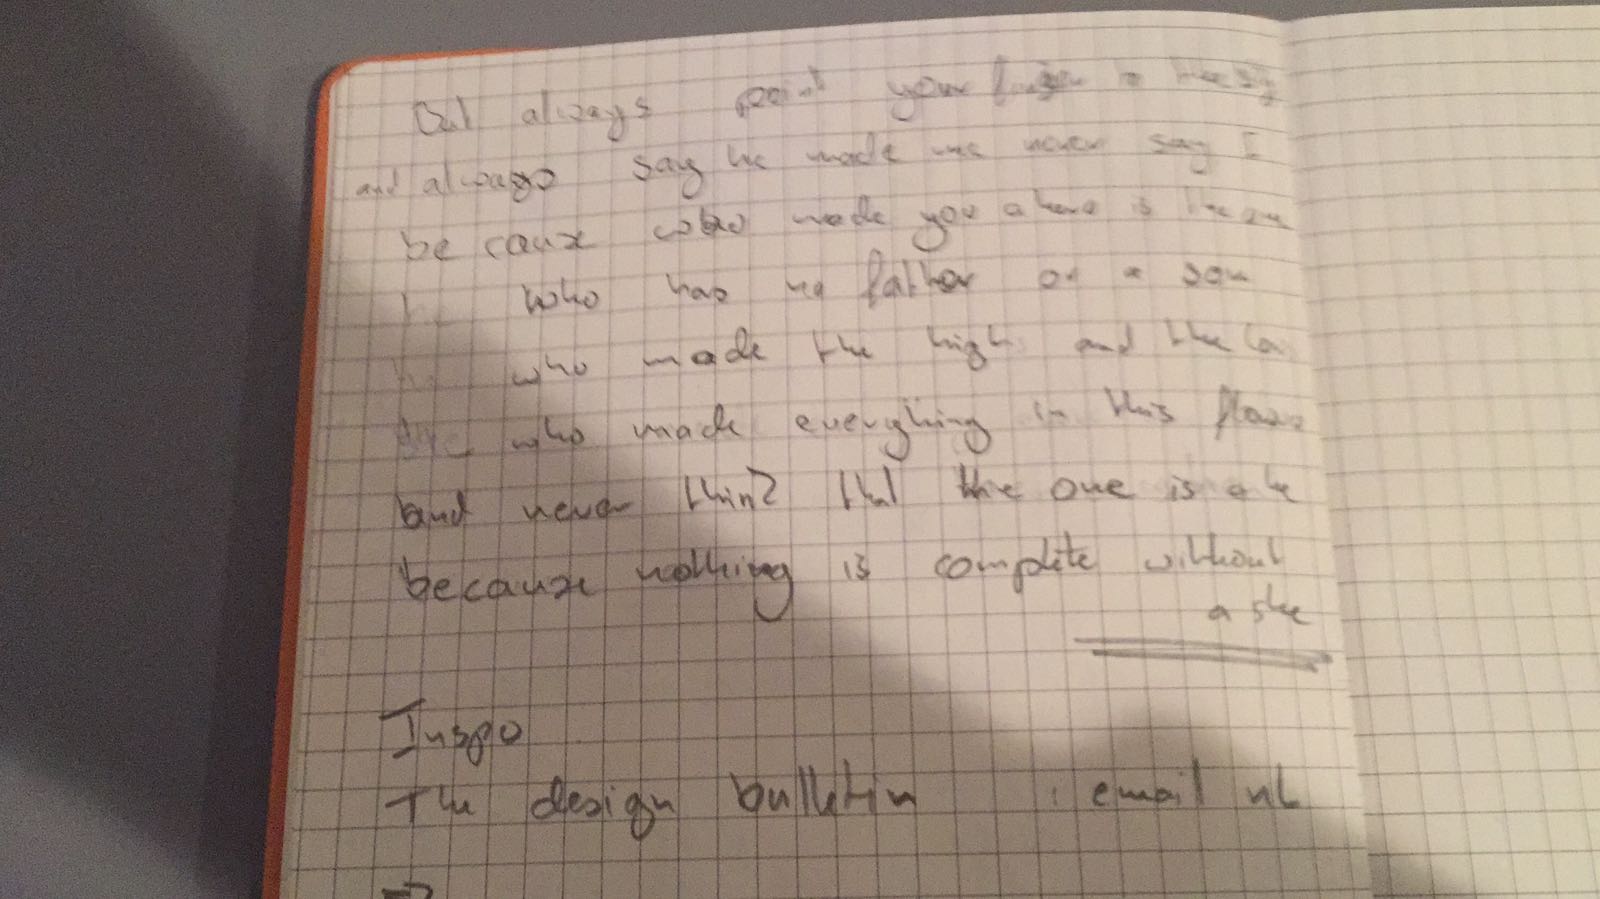 But always point your finger to the sky
and always say he made me never say I
be cause who made you alone is the one
he who has no father or a son
he who made the high and the low
he who made everything in this
and never think that the one is a he
because nothing is complete without
a she
Inspo
The design bulletin : email nL
→